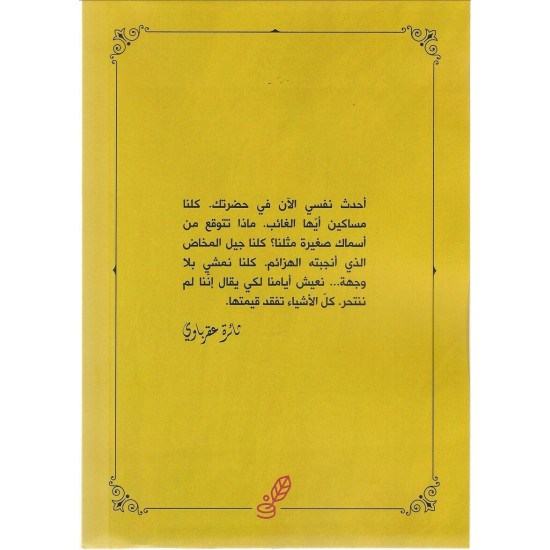 أحدث نفسي الآن في حضرتك. كلنا
مساكين أيّها الغائب. ماذا تتوقع من
أسماك صغيرة مثلنا؟ كلنا جيل المخاض
الذي أنجبته الهزائم. كلنا نمشي بلا
وجهة... نعيش أيامنا لكي يقال إننا لم
ننتحر. كلّ الأشياء تفقد قيمتها.
ثائرة عقرباوي